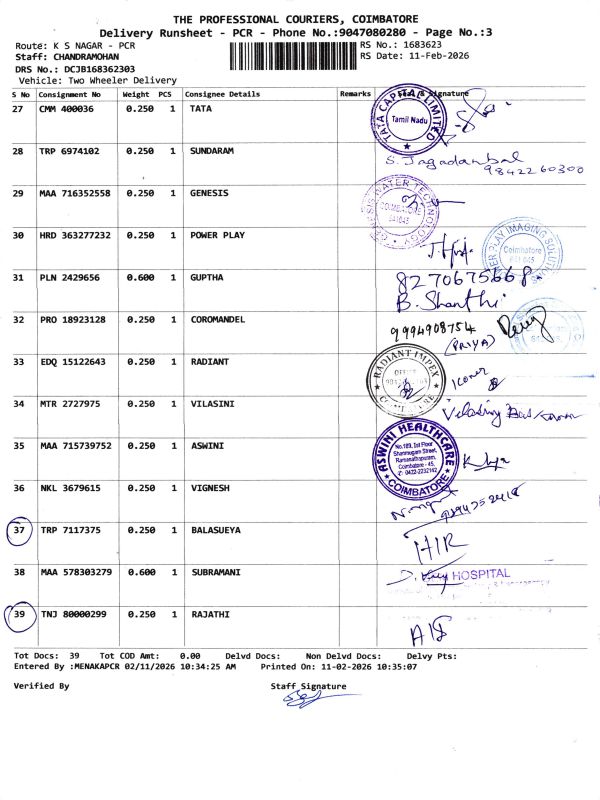 THE PROFESSIONAL COURIERS, COIMBATORE
Delivery Runsheet - PCR - Phone No.:9047080280 - Page No.:3
Route: K S NAGAR - PCR
RS No.: 1683623
Staff: CHANDRAMOHAN
RS Date: 11-Feb-2026
DRS No.: DCJB168362303
Vehicle: Two Wheeler Delivery
S No Consignment No Weight PCS Consignee Details Remarks Seal & Signature
27 CMM 400036 0.250 1 TATA
TATA CAPITAL LIMITED
Tamil Nadu
28 TRP 6974102 0.250 1 SUNDARAM
S. Jagadambal
9842260300
29 MAA 716352558 0.250 1 GENESIS
GENESIS WATER TECHNOLOGY
COIMBATORE
641045
30 HRD 363277232 0.250 1 POWER PLAY
POWER PLAY IMAGING SOLUTIONS
Coimbatore
641 045
31 PLN 2429656 0.600 1 GUPTHA
8270675668
B. Shanthi
32 PRO 18923128 0.250 1 COROMANDEL
9994908754
(PRIYA)
33 EDQ 15122643 0.250 1 RADIANT
RADIANT IMPEX
OFFICE
COIMBATORE
34 MTR 2727975 0.250 1 VILASINI
35 MAA 715739752 0.250 1 ASWINI
ASWINI HEALTHCARE
No.189, 1st Floor
Shanmugam Street,
Ramanathapuram,
Coimbatore - 45.
0422-2232142
COIMBATORE
36 NKL 3679615 0.250 1 VIGNESH
37 TRP 7117375 0.250 1 BALASUEYA
38 MAA 578303279 0.600 1 SUBRAMANI
HOSPITAL
39 TNJ 80000299 0.250 1 RAJATHI
Tot Docs: 39 Tot COD Amt: 0.00 Delvd Docs: Non Delvd Docs: Delvy Pts:
Entered By :MENAKAPCR 02/11/2026 10:34:25 AM Printed On: 11-02-2026 10:35:07
Verified By Staff Signature